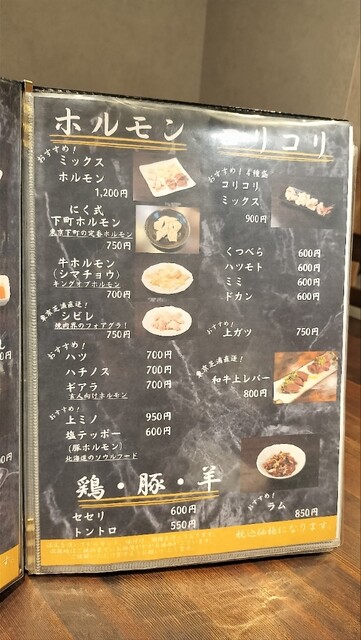 ホルモン
おすすめ!
ミックス
ホルモン
1,200円
にく式
下町ホルモン
東京下町の定番ホルモン
750円
牛ホルモン
(シマチョウ)
キングオブホルモン
700円
東京芝浦直送!
シビレ
焼肉界のフォアグラ!
750円
おすすめ!
ハツ 700円
ハチノス 700円
ギアラ 700円
玄人向けホルモン
おすすめ!
上ミノ 950円
塩テッポー 600円
(豚ホルモン)
北海道のソウルフード
コリコリ
おすすめ!4種盛
コリコリ
ミックス
900円
くつべら 600円
ハツモト 600円
ミミ 600円
ドカン 600円
おすすめ!
上ガツ 750円
東京芝浦直送!
和牛上レバー
800円
鶏・豚・羊
セセリ 600円
トントロ 550円
おすすめ!
ラム 850円
税込価格になります。